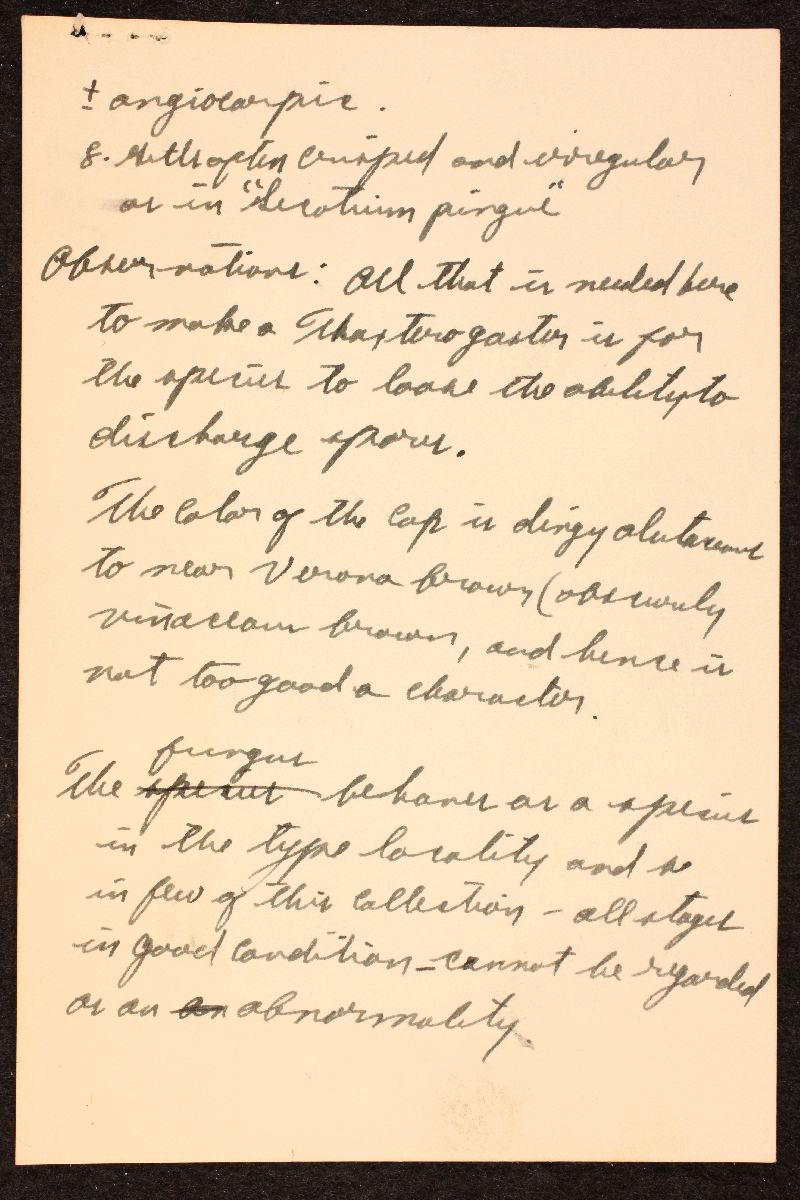 ± angiocarpic.
8. Gills often crisped and irregular
as in "Secotium pingue"
Observations: All that is needed here
to make a Thaxterogaster is for
the species to loose the ability to
discharge spores.
The color of the cap is dingy alutaceous
to near Verona brown (obscurely
vinaceous brown, and hence is
not too good a character.
fungus
The species behaves as a species
in the type locality and
in few of this collection - all stages
in good condition - cannot be regarded
as an an abnormality.